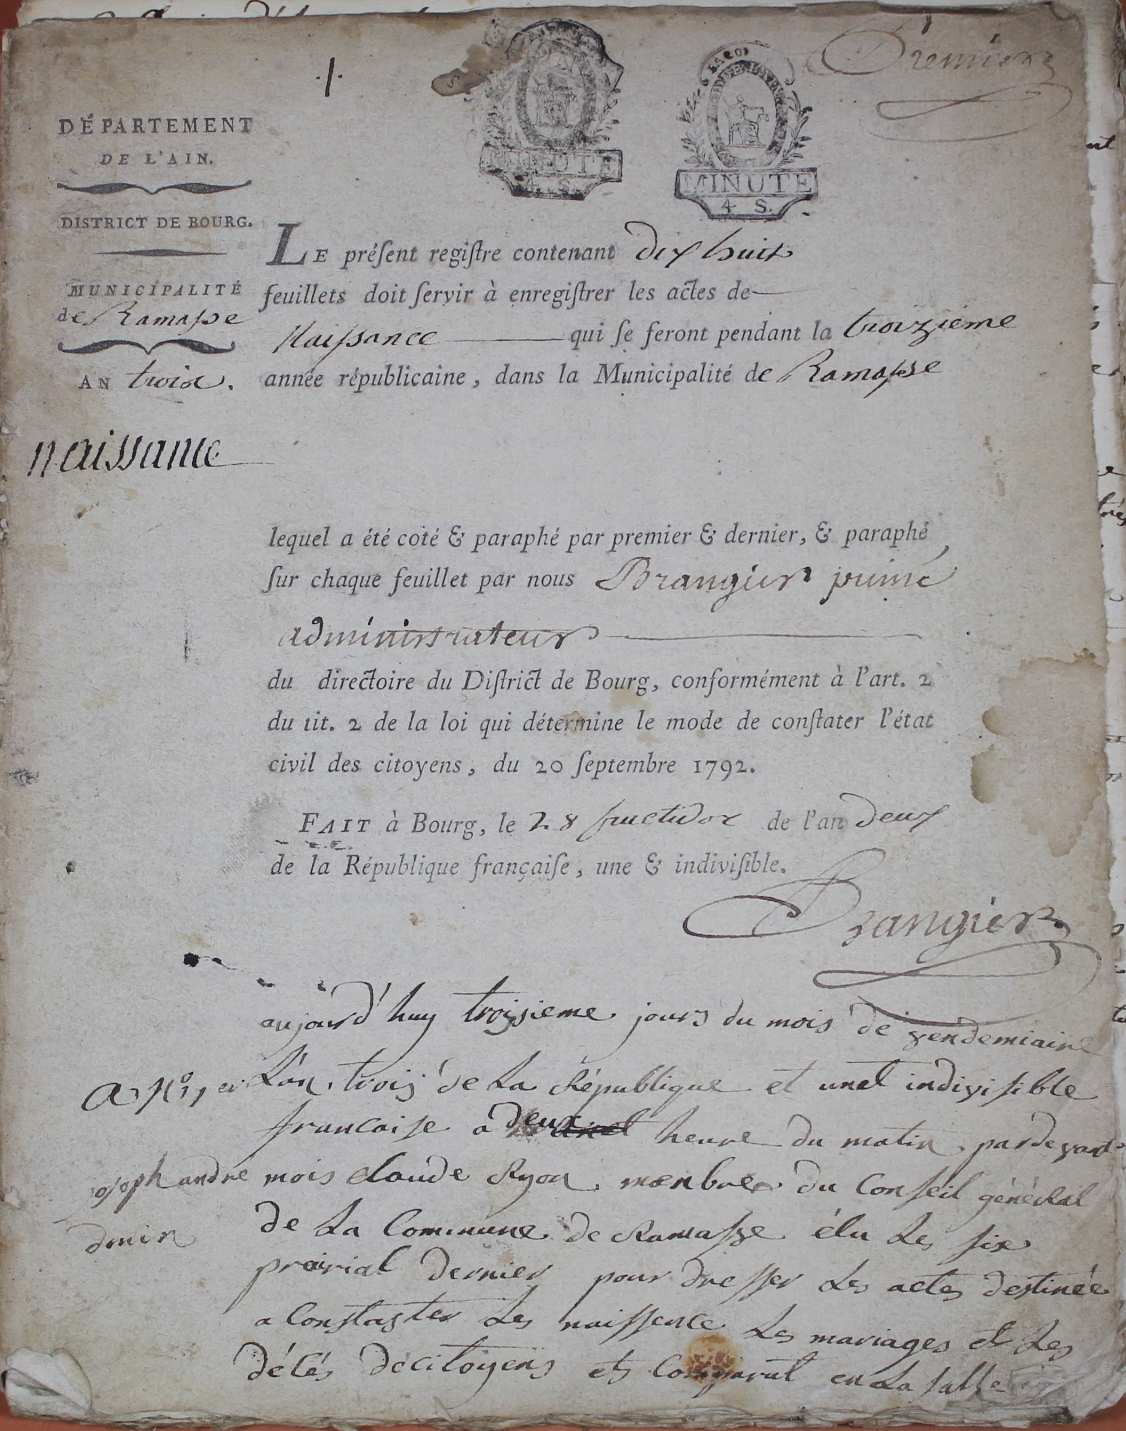 .1.
Premier
DÉPARTEMENT
DE L'AIN.
DISTRICT DE BOURG.
MUNICIPALITÉ
de Ramasse
AN trois.
naissance
MINUTE
4 S.
MINUTE
4 S.
LE préſent regiſtre contenant dix huit
feuillets doit ſervir à enregiſtrer les actes de
Naissance qui ſe feront pendant la troizieme
année républicaine, dans la Municipalité de Ramasse
lequel a été coté & paraphé par premier & dernier, & paraphé
ſur chaque feuillet par nous Brangier puiné
administrateur
du directoire du Diſtrict de Bourg, conformément à l'art. 2
du tit. 2 de la loi qui détermine le mode de conſtater l'état
civil des citoyens, du 20 ſeptembre 1792.
FAIT à Bourg, le 28 fructidor de l'an deux
de la République françaiſe, une & indiviſible.
Brangier
aujourd'huy troisieme jours du mois de vendemiaire
L'an trois de La République et unet indivisible
francoise a deux heure du matin pardevant
mois Claude Ryon mœnbre du Conseil généralal
de La Commune de Ramasse élu Les six
prairial dernier pour dresser Les actes destinée
a Constaster Les naissence Les mariages et Les
décés décitoyens et Comparut en La salle
osoph andre